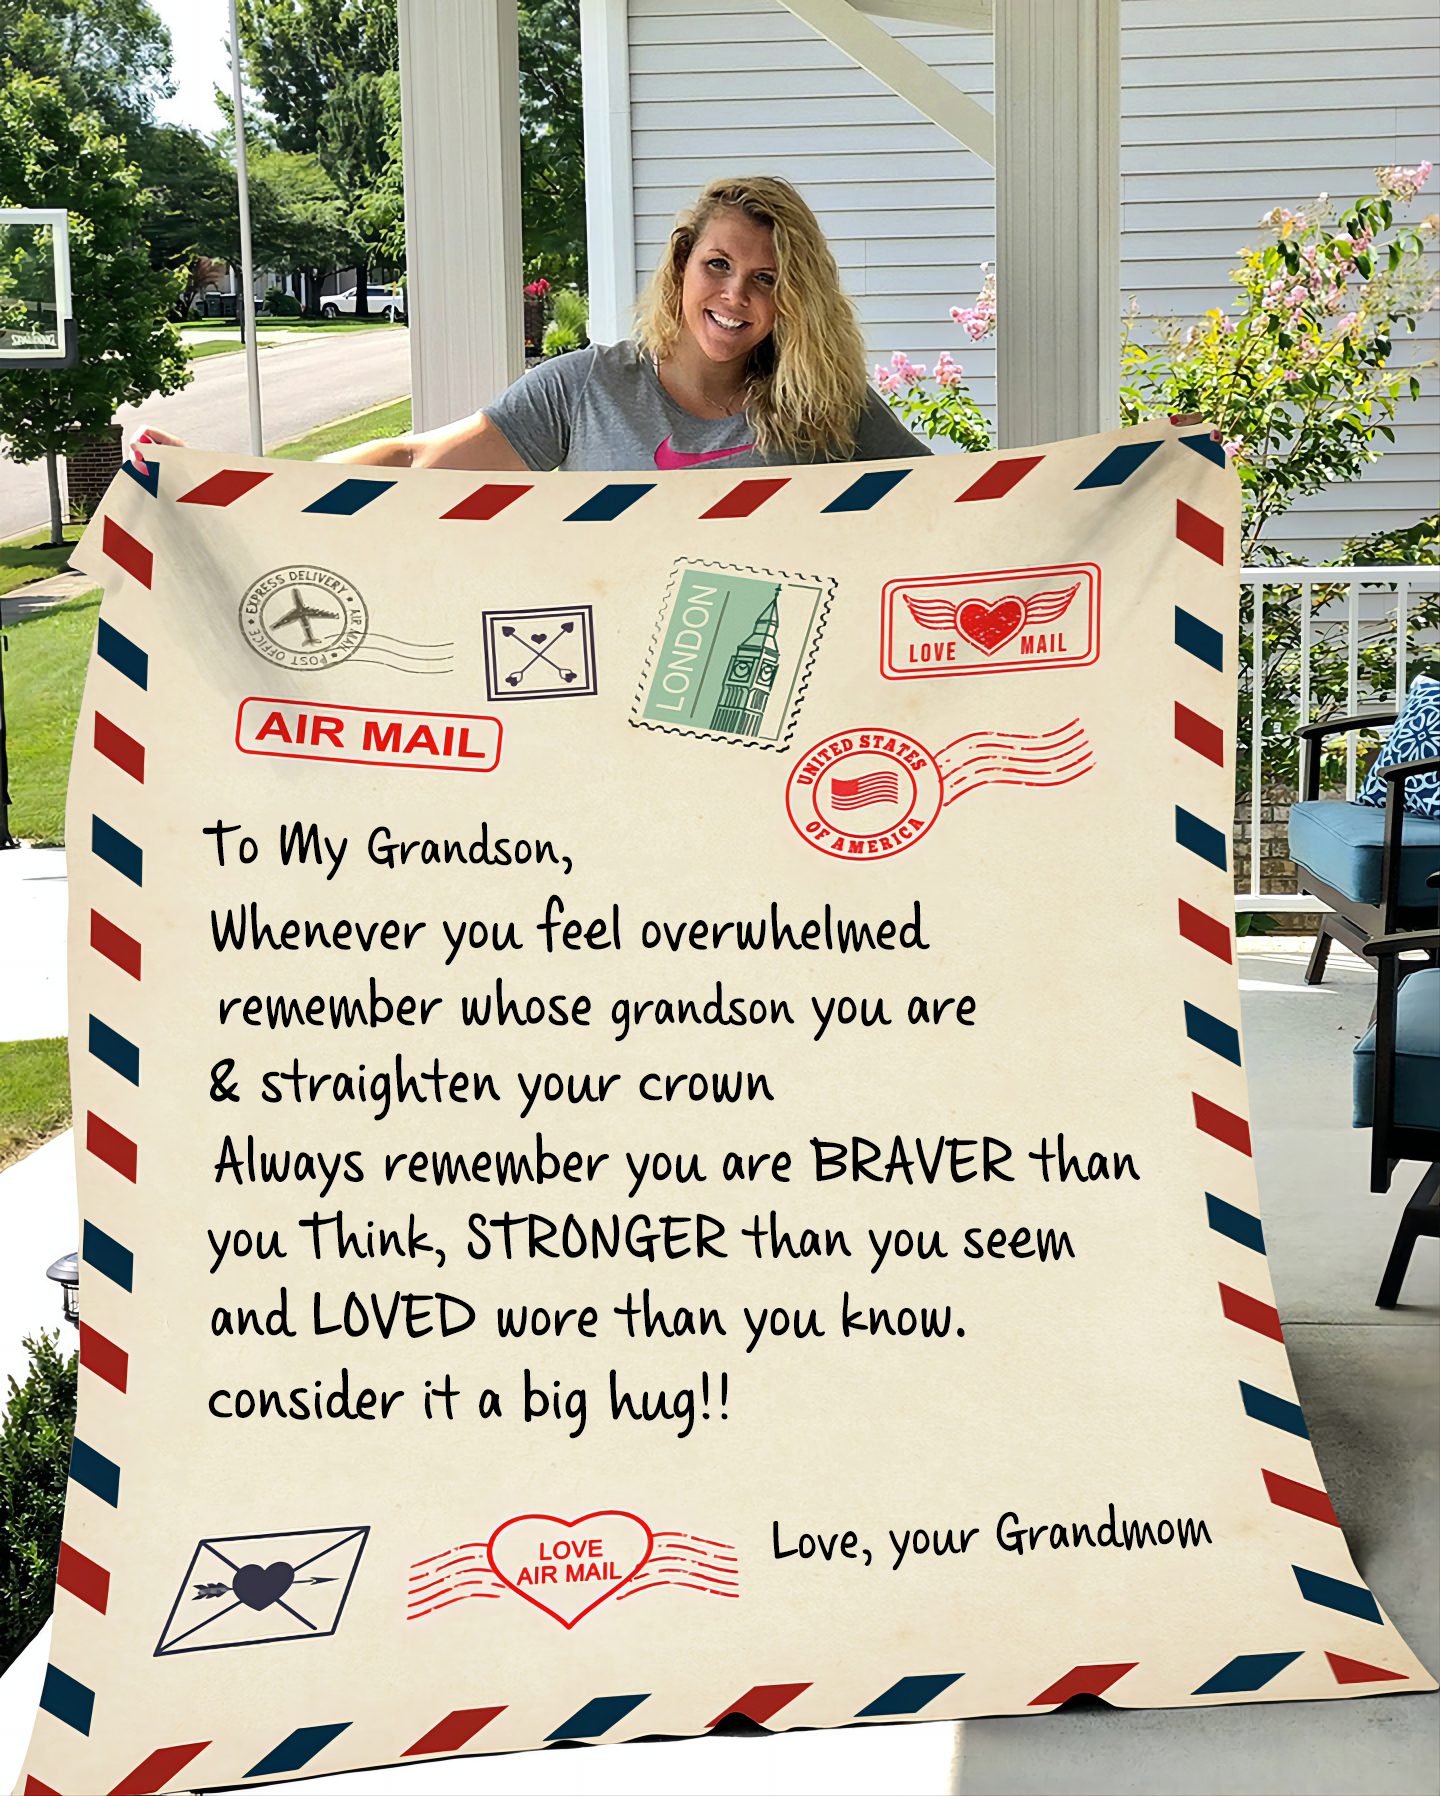 EXPRESS DELIVERY • AIR MAIL • POST OFFICE •
LONDON
LOVE MAIL
AIR MAIL
UNITED STATES
OF AMERICA
To My Grandson,
Whenever you feel overwhelmed
remember whose grandson you are
& straighten your crown
Always remember you are BRAVER than
you Think, STRONGER than you seem
and LOVED wore than you know.
consider it a big hug!!
LOVE
AIR MAIL
Love, your Grandmom